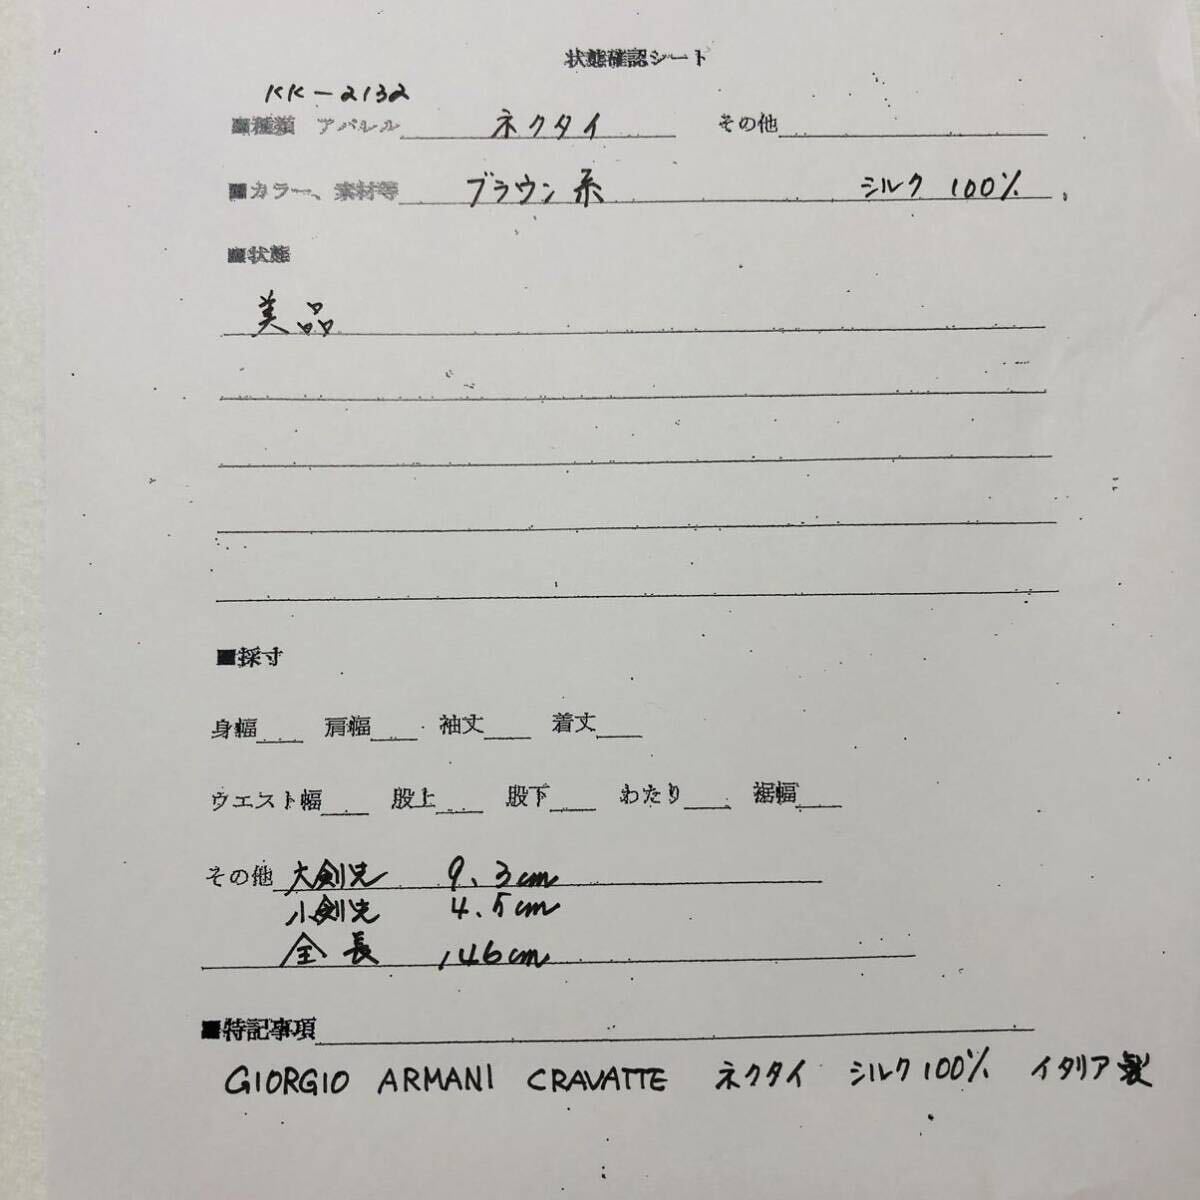 状態確認シート
KK-2132
■種類 アパレル ネクタイ その他
■カラー、素材等 ブラウン系 シルク 100%
■状態
美品
■採寸
身幅 肩幅 袖丈 着丈
ウエスト幅 股上 股下 わたり 裾幅
その他 大剣先 9.3cm
小剣先 4.5cm
全長 146cm
■特記事項
GIORGIO ARMANI CRAVATTE ネクタイ シルク100% イタリア製